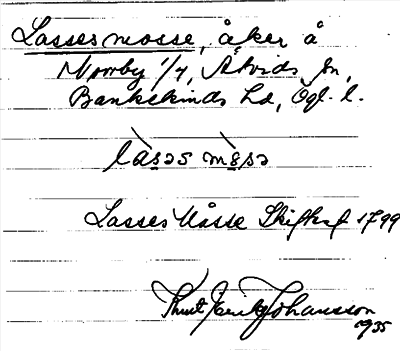 Lassesmosse, åker å
Norrby 1/4, Åtvids sn,
Bankekinds hd, Ögl. l.
làsəs mòsə
Lasses Måsse Skifteskal 1799
Knut Erik Johansson
1935